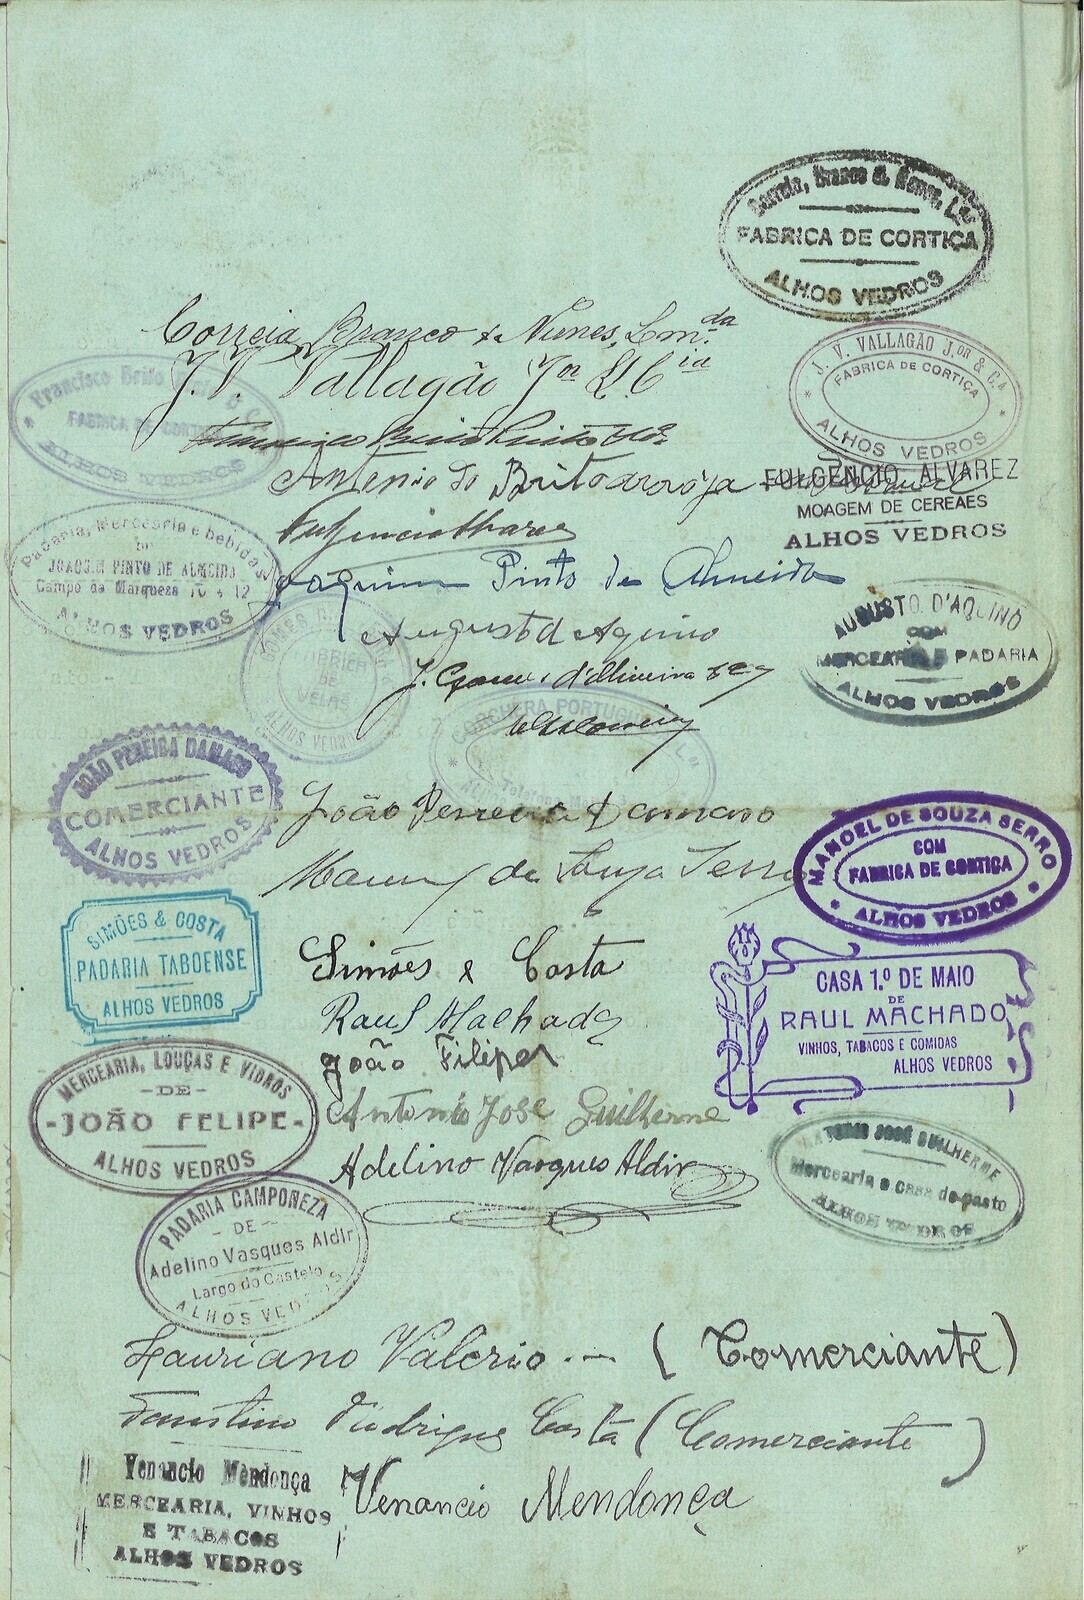 Correia, Branco & Nunes, Lda
FABRICA DE CORTIÇA
ALHOS VEDROS
Correia Branco & Nunes, Lmda
J. V. Vallagão Jor & Cia
J. V. VALLAGÃO Jor & Ca
FABRICA DE CORTIÇA
ALHOS VEDROS
Francisco Brito
FABRICA DE CORTIÇA
ALHOS VEDROS
Antonio de Brito
FULGENCIO ALVAREZ
MOAGEM DE CEREAES
ALHOS VEDROS
Fulgencio Alvarez
Padaria, Mercearia e bebidas
DE
JOAQUIM PINTO DE ALMEIDA
Campo da Marqueza 10 a 12
ALHOS VEDROS
Joaquim Pinto de Almeida
Augusto d'Aquino
AUGUSTO D'AQUINO
COM
MERCEARIA E PADARIA
ALHOS VEDROS
DE
VELAS
ALHOS VEDROS
J. Gomes d'Oliveira
PORTUGUEZA
JOÃO PEREIRA DAMASO
COMERCIANTE
ALHOS VEDROS
João Perreira Damaso
Manuel de Souza Serro
MANOEL DE SOUZA SERRO
COM
FABRICA DE CORTIÇA
ALHOS VEDROS
SIMÕES & COSTA
PADARIA TABOENSE
ALHOS VEDROS
Simões & Costa
Raul Machado
CASA 1.º DE MAIO
DE
RAUL MACHADO
VINHOS, TABACOS E COMIDAS
ALHOS VEDROS
João Filipe
MERCEARIA, LOUÇAS E VIDROS
-DE-
-JOÃO FELIPE-
ALHOS VEDROS
Antonio José Guilherme
ANTONIO JOSÉ GUILHERME
Mercearia e casa de pasto
ALHOS VEDROS
Adelino Vasques Aldir
PADARIA CAMPONEZA
-DE-
Adelino Vasques Aldir
Largo do Castelo
ALHOS VEDROS
Lauriano Valerio . - (Comerciante)
Faustino Rodrigues Costa (Comerciante)
Venancio Mendonça
Venancio Mendonça
MERCEARIA, VINHOS
E TABACOS
ALHOS VEDROS